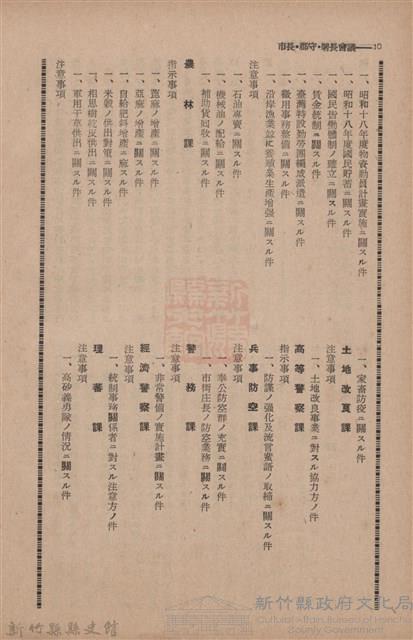 市長・郡守・署長會議――10
一、昭和十八年度物資動員計畫實施ニ關スル件
一、昭和十八年度國民貯蓄ニ關スル件
一、國民皆勞體制ノ確立ニ關スル件
一、賃金統制ニ關スル件
一、臺灣特設勤勞團編成派遣ニ關スル件
一、徵用事務整備ニ關スル件
一、沿岸漁業竝ニ養殖業生產增强ニ關スル件
注意事項
一、石油專賣ニ關スル件
一、機械油ノ配給ニ關スル件
一、補助貨回收ニ關スル件
農林課
指示事項
一、蓖麻ノ增產ニ關スル件
一、亞麻ノ增產ニ關スル件
一、自給肥料增產ニ關スル件
一、米穀ノ供出對策ニ關スル件
一、相思樹乾皮供出ニ關スル件
一、軍用干草供出ニ關スル件
注意事項
一、家畜防疫ニ關スル件
土地改良課
注意事項
一、土地改良事業ニ對スル協力方ノ件
高等警察課
指示事項
一、防諜ノ强化及流言蜚語ノ取締ニ關スル件
兵事防空課
注意事項
一、奉公防空群ノ充實ニ關スル件
一、市街庄長ノ防空業務ニ關スル件
警務課
注意事項
一、非常警備ノ實施計畫ニ關スル件
經濟警察課
注意事項
一、統制事務關係者ニ對スル注意方ノ件
理蕃課
注意事項
一、高砂義勇隊ノ情況ニ關スル件
新竹縣縣史館
新竹縣政府文化局
Cultural Affairs Bureau of Hsinchu County Government